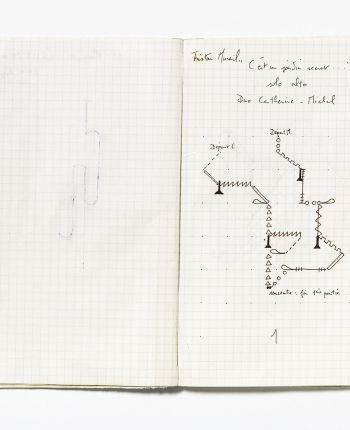 Tristan Murail..
C'est un jardin secret ...
solo alto
Duo Catherine - Michel
Départ M.
Départ C.
rencontre : fin 1ère partie
1